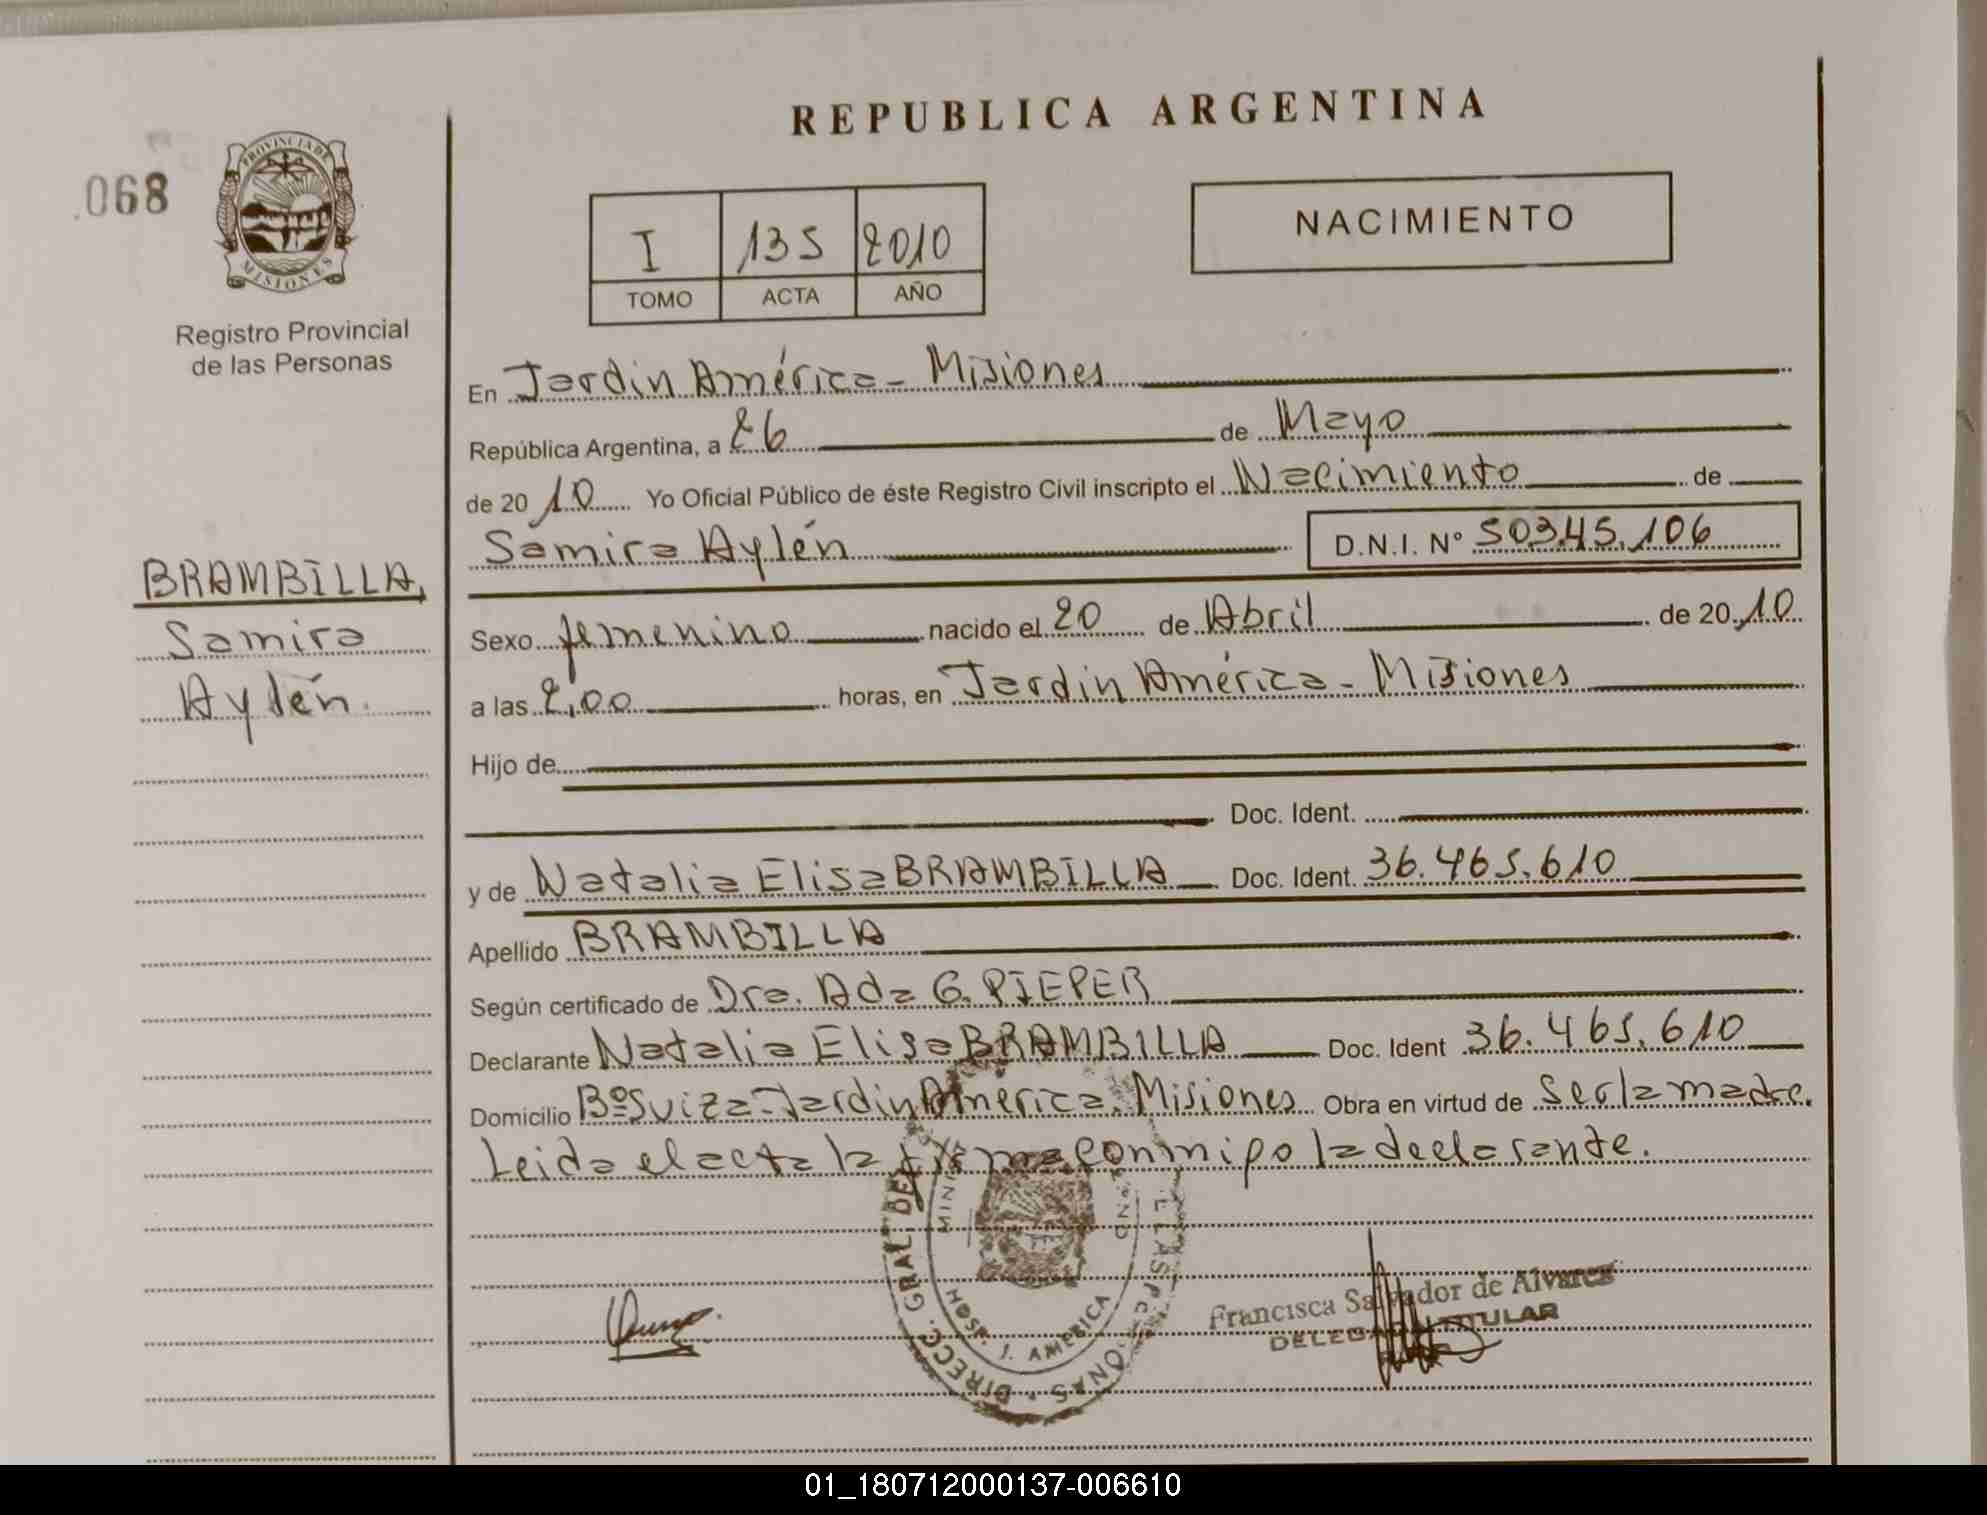 REPUBLICA ARGENTINA
068
PROVINCIA DE
MISIONES
Registro Provincial
de las Personas
I 135 2010
TOMO ACTA AÑO
NACIMIENTO
En Jardin América - Misiones
República Argentina, a 26 de Mayo
de 20 10 Yo Oficial Público de éste Registro Civil inscripto el Nacimiento de
Samira Aylén D.N.I. N° 50345.106
BRAMBILLA,
Samira
Aylén.
Sexo femenino nacido el 20 de Abril de 20 10
a las 2,00 horas, en Jardin América - Misiones
Hijo de
Doc. Ident.
y de Natalia Elisa BRAMBILLA Doc. Ident. 36.465.610
Apellido BRAMBILLA
Según certificado de Dra. Ada G. PIEPER
Declarante Natalia Elisa BRAMBILLA Doc. Ident 36.465.610
Domicilio Bº Suiza - Jardin América. Misiones Obra en virtud de ser la madre.
Leida el acta la firma conmigo la declarante.
DIRECC. GRAL. DEL
HOSP. J. AMERICA
Francisca Salvador de Alvarez
DELEGADA TITULAR
01_180712000137-006610